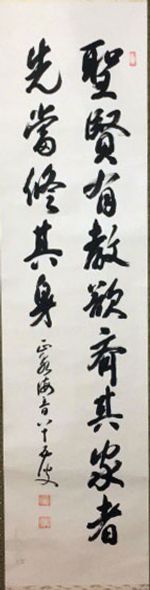 聖賢有教欲齊其家者
先當修其身